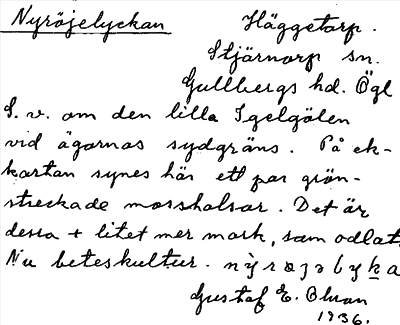 Nyröjelyckan Häggetorp.
Stjärnorp sn.
Gullbergs hd. Ögl
S. v. om den lilla Igelgölen
vid ägornas sydgräns. På ek-
kartan synes här ett par grön-
streckade mosshalsar. Det är
dessa + litet mer mark, som odlat
Nu beteskultur.
Gustaf E. Ohman
1936.